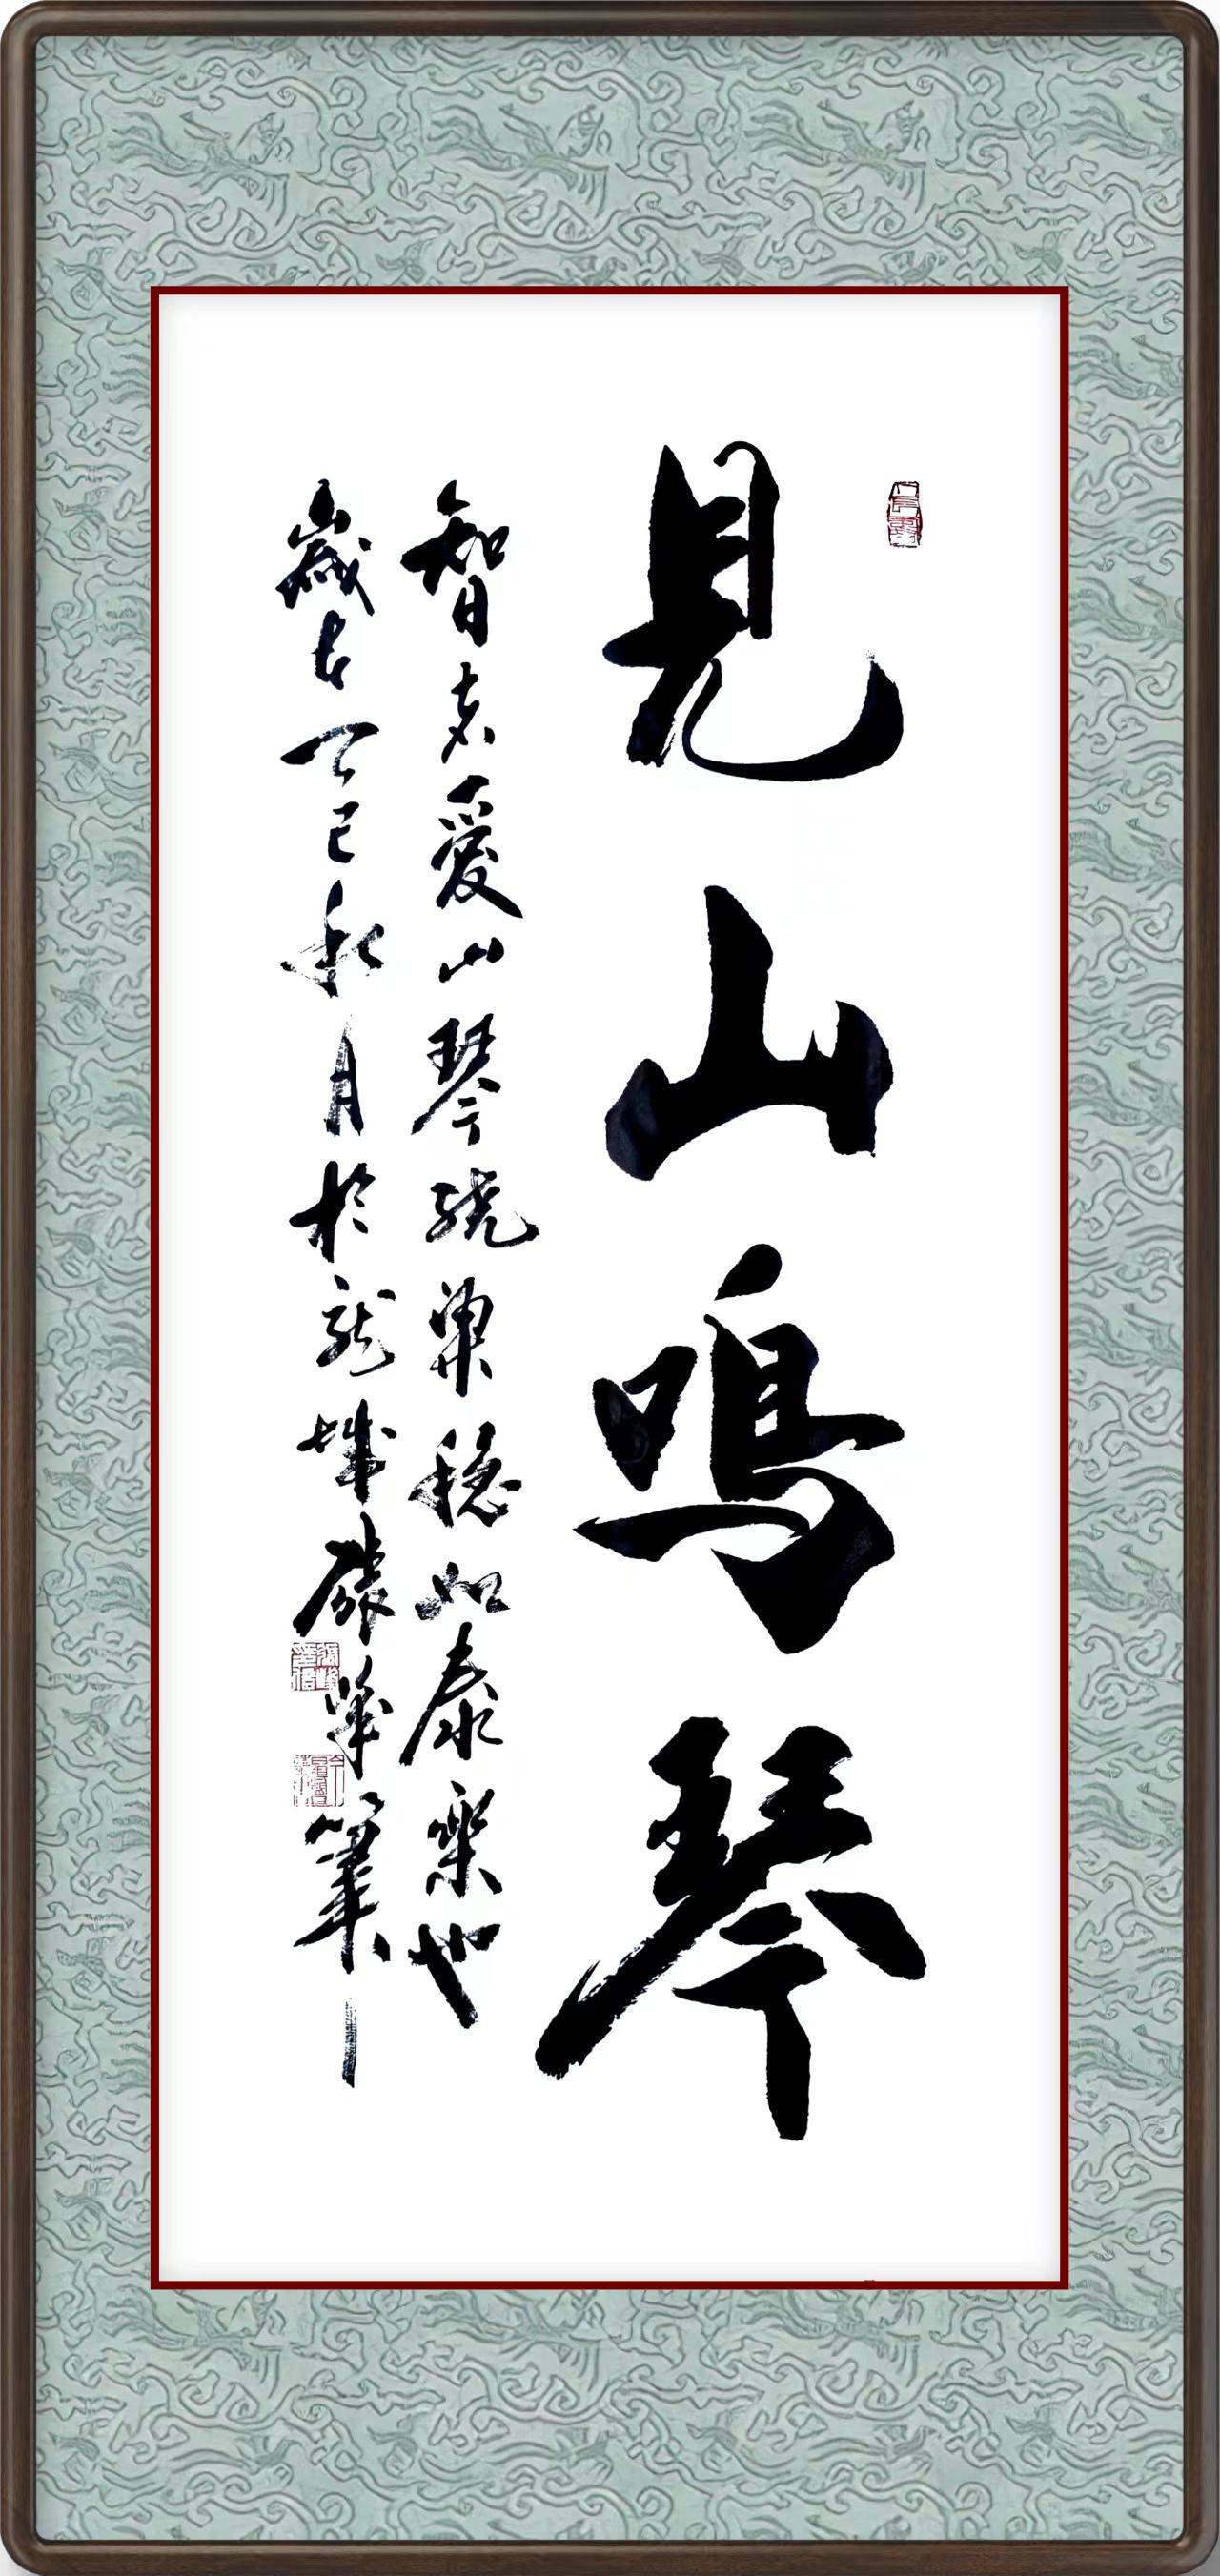 見山鳴琴
智者愛山琴繞梁穩如泰樂也
歲在丁巳秋月於龍城
筆